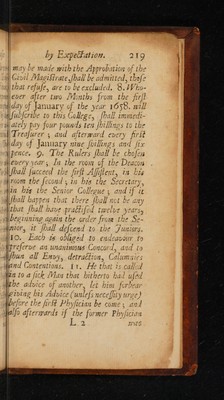 by Expectation. 219
may be made with the Approbation of the
Civil Magistrate, shall be admitted, those
that refuse, are to be excluded. 8. Who-
ever after two Months from the first
day of January of the year 1658. will
subscribe to this College, shall immedi-
ately pay four pounds ten shillings to the
Treasurer; and afterward every first
day of January nine shillings and six
pence. 9. The Rulers shall be chosen
every year; In the room of the Deacon
shall succeed the first Assistent, in his
room the second; in his the Secretary,
in his the Senior Collegue; and if it
shall happen that there shall not be any
that shall have practised twelve years,
beginning again the order from the Se-
nior, it shall descend to the Juniors.
10. Each is obliged to endeavour to
preserve an unanimous Concord, and to
shun all Envy, detraction, Calumnies
and Contentions. 11. He that is called
in to a sick Man that hitherto had used
the advice of another, let him forbear
giving his Advice (unless necessity urge)
before the first Physician be come; and
also afterwards if the former Physician
L 2 was